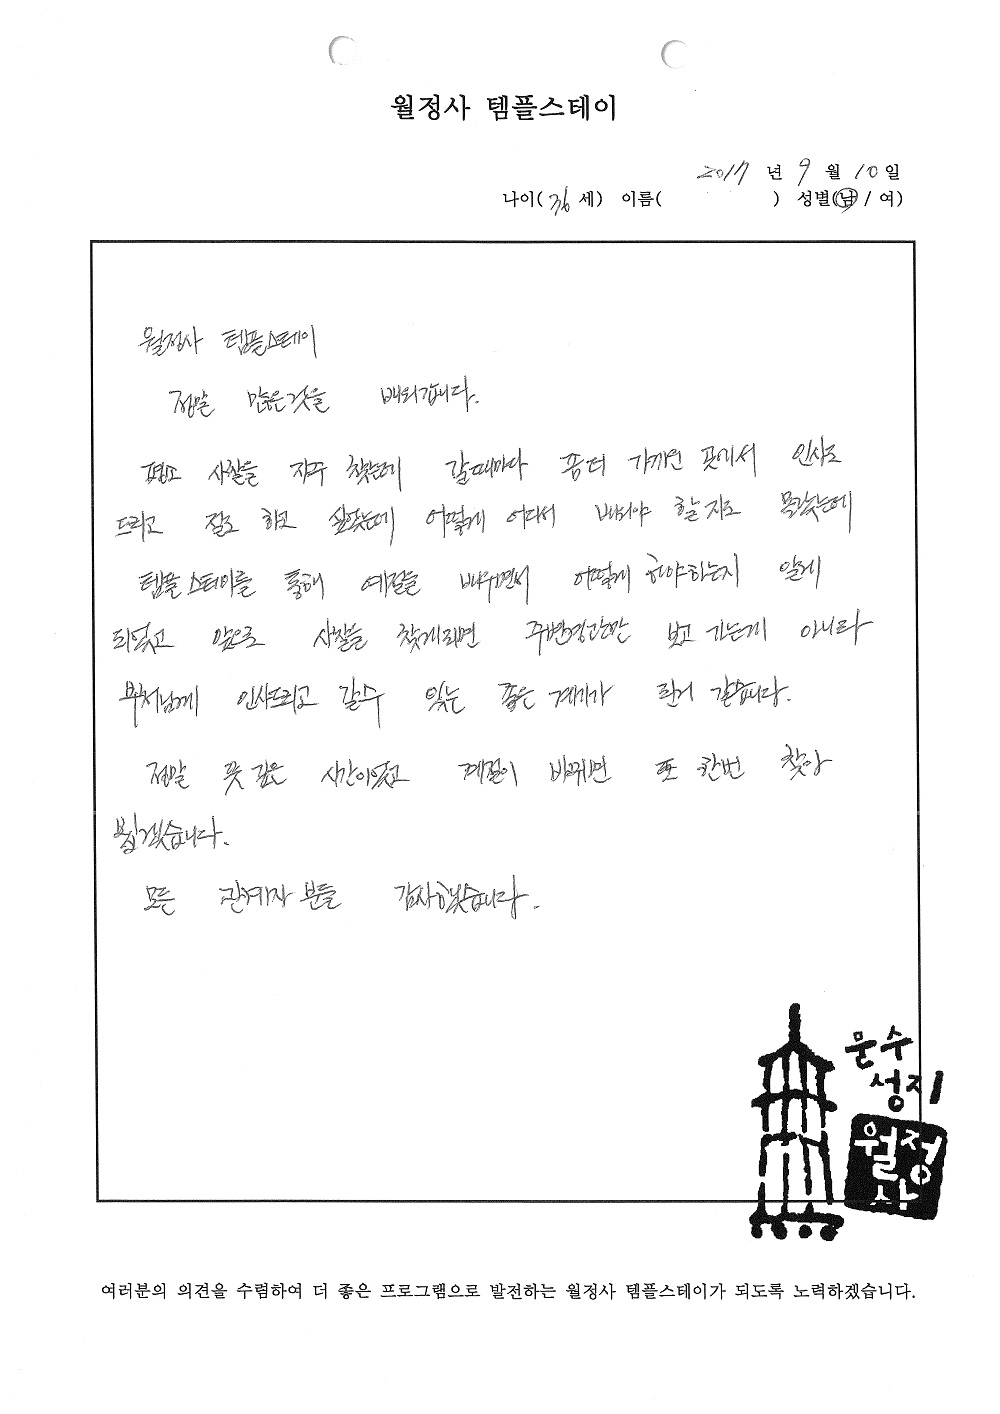 월정사 템플스테이
2017 년 9 월 10 일
나이( 36 세) 이름( ) 성별(남 / 여)
월정사 템플스테이
정말 많은것을 배워갑니다.
평소 사찰을 자주 찾는데 갈때마다 좀더 가까운 곳에서 인사도
드리고 절도 하고 싶었는데 어떻게 어디서 배워야 할지도 몰랐는데
템플스테이를 통해 예절을 배우면서 어떻게 하야하는지 알게
되었고 앞으로 사찰을 찾게되면 주변경관만 보고 가는게 아니라
부처님께 인사드리고 갈수 있는 좋은 계기가 된거 같습니다.
정말 뜻 깊은 시간이었고 계절이 바뀌면 또 한번 찾아
뵙겠습니다.
모든 관계자 분들 감사했습니다.
문수
성지
월정
사
여러분의 의견을 수렴하여 더 좋은 프로그램으로 발전하는 월정사 템플스테이가 되도록 노력하겠습니다.